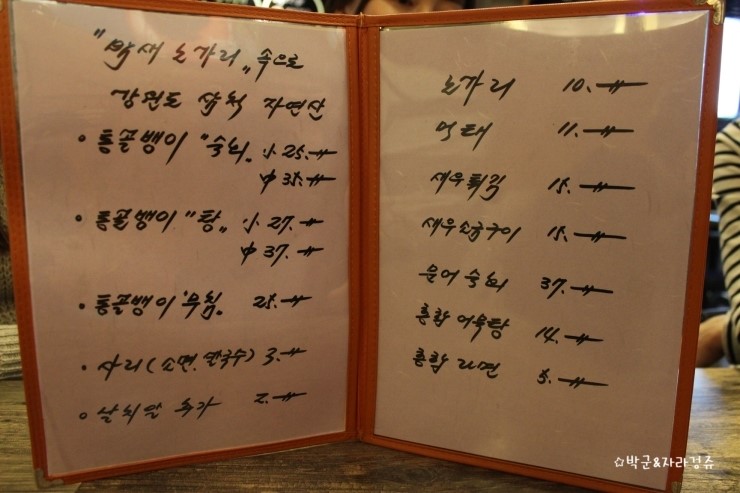 "막새 노가리" 속으로
강원도 삼척 자연산
• 통골뱅이 "숙회" 小 25.-
中 35.-
• 통골뱅이 "탕" 小 27.-
中 37.-
• 통골뱅이 "무침" 28.-
• 사리 (소면. 칼국수) 3.-
• 날치알 추가 2.-
노가리 10.-
먹태 11.-
새우튀김 15.-
새우소금구이 15.-
문어숙회 37.-
홍합어묵탕 14.-
홍합라면 5.-
☆박군&자라경쥬